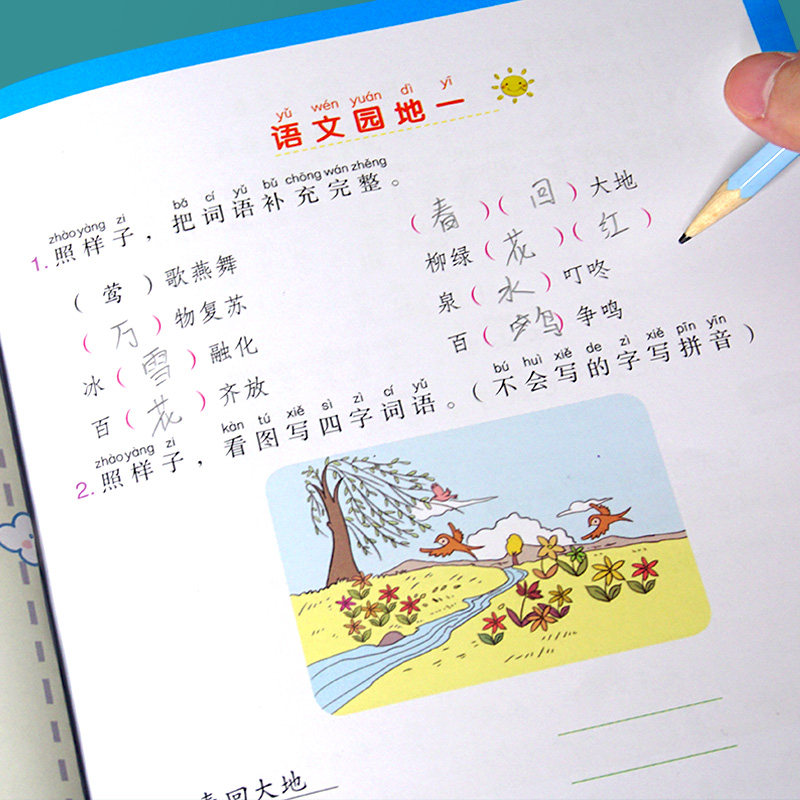 yǔ wén yuán dì yī
语文园地一
zhào yàng zi bǎ cí yǔ bǔ chōng wán zhěng
1. 照样子，把词语补充完整。
（莺）歌燕舞 （春）（回）大地
（万）物复苏 柳绿（花）（红）
冰（雪）融化 泉（水）叮咚
百（花）齐放 百（鸟）争鸣
zhào yàng zi kàn tú xiě sì zì cí yǔ bú huì xiě de zì xiě pīn yīn
2. 照样子，看图写四字词语。（不会写的字写拼音）
春回大地